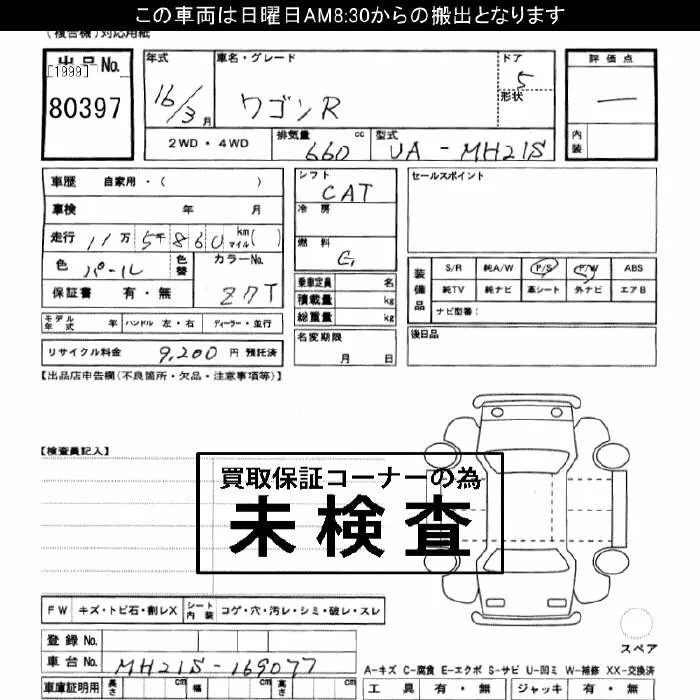 この車両は日曜日AM8:30からの搬出となります
(複合機)対応用紙
出品No.
[1999]
80397
年式
16/3月
車名・グレード
ワゴンR
ドア
5
形状
評価点
―
内装
2WD・4WD
排気量
660 cc
型式
UA-MH21S
車歴 自家用・( )
車検 年 月
走行 11万5千860 km マイル( )
色 パール
色替
カラーNo.
Z7T
保証書 有・無
モデル年式 年 ハンドル 左・右 ディーラー・並行
リサイクル料金 9,200 円 預託済
シフト
CAT
冷房
燃料
G
乗車定員 名
積載量 kg
総重量 kg
名変期限
月 日
セールスポイント
装備品
S/R 純A/W P/S P/W ABS
純TV 純ナビ 革シート 外ナビ エアB
ナビ型番:
後日品
【出品店申告欄(不良箇所・欠品・注意事項等)】
【検査員記入】
買取保証コーナーの為
未検査
FW キズ・トビ石・割レX シート内装 コゲ・穴・汚レ・シミ・破レ・スレ
登録No.
車台No. MH21S-169077
車庫証明用 長さ cm 幅 cm 高さ cm
スペア
A-キズ C-腐食 E-エクボ S-サビ U-凹ミ W-補修 XX-交換済
工具 有・無 ジャッキ 有・無